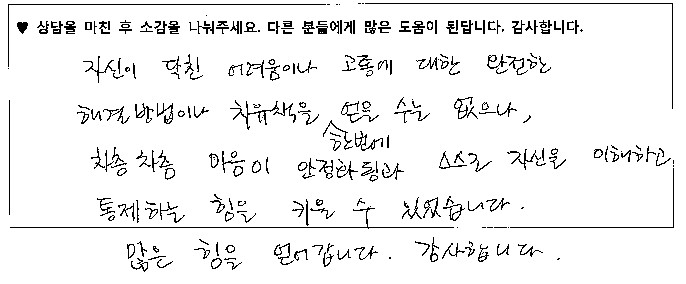 ♥ 상담을 마친 후 소감을 나눠주세요. 다른 분들에게 많은 도움이 된답니다. 감사합니다.
자신이 닥친 어려움이나 고통에 대한 완전한
해결방법이나 치유책을 한번에 얻을 수는 없으나,
차츰차츰 마음이 안정화됨과 스스로 자신을 이해하고
통제하는 힘을 키울 수 있었습니다.
많은 힘을 얻어갑니다. 감사합니다.